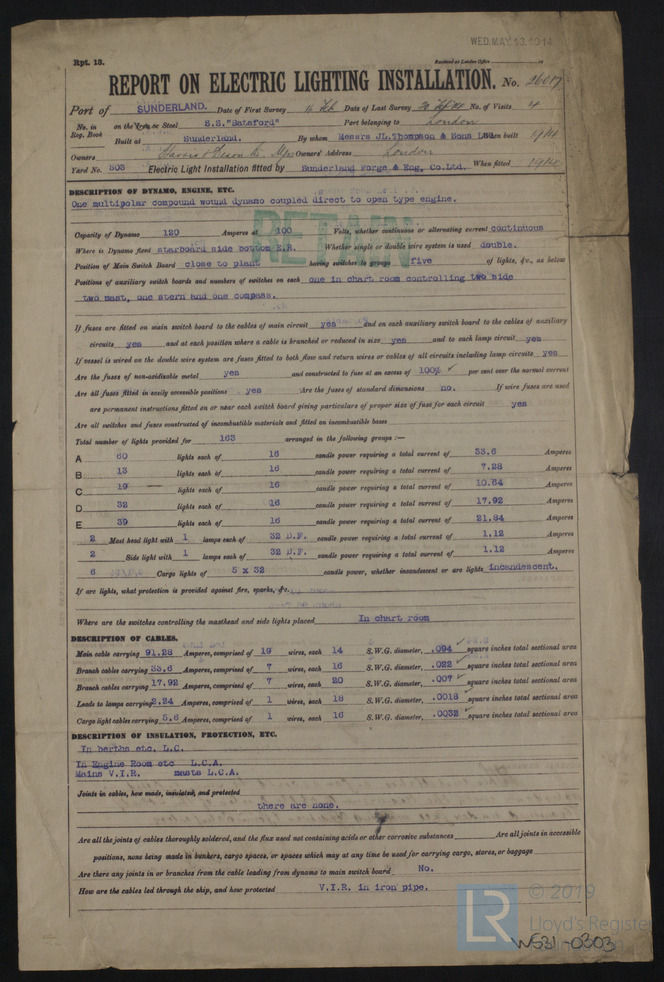 WED. MAY. 13. 1914
Rpt. 13.
Received at London Office
REPORT ON ELECTRIC LIGHTING INSTALLATION. No. 26017
Port of SUNDERLAND. Date of First Survey 16 Feb Date of Last Survey No. of Visits 4
No. in Reg. Book on the Iron or Steel S.S."Bataford" Port belonging to London
Built at Sunderland. By whom Messrs JL.Thompson & Sons Ltd. When built 1914
Owners Owners' Address London
Yard No. 503 Electric Light Installation fitted by Sunderland Forge & Eng, Co.Ltd. When fitted 1914
DESCRIPTION OF DYNAMO, ENGINE, ETC.
One multipolar compound wound dynamo coupled direct to open type engine.
RETAIN
Capacity of Dynamo 120 Amperes at 100 Volts, whether continuous or alternating current continuous
Where is Dynamo fixed starboard side bottom E.R. Whether single or double wire system is used double.
Position of Main Switch Board close to plant having switches to groups five of lights, &c., as below
Positions of auxiliary switch boards and numbers of switches on each one in chart room controlling two side
two mast, one stern and one compass.
If fuses are fitted on main switch board to the cables of main circuit yes and on each auxiliary switch board to the cables of auxiliary
circuits yes and at each position where a cable is branched or reduced in size yes and to each lamp circuit yes
If vessel is wired on the double wire system are fuses fitted to both flow and return wires or cables of all circuits including lamp circuits yes
Are the fuses of non-oxidizable metal yes and constructed to fuse at an excess of 100% ✓ per cent over the normal current
Are all fuses fitted in easily accessible positions yes Are the fuses of standard dimensions no. If wire fuses are used
are permanent instructions fitted on or near each switch board giving particulars of proper size of fuse for each circuit yes
Are all switches and fuses constructed of incombustible materials and fitted on incombustible bases
Total number of lights provided for 163 arranged in the following groups :—
A 60 lights each of 16 candle power requiring a total current of 33.6 Amperes
B 13 lights each of 16 candle power requiring a total current of 7.28 Amperes
C 19 lights each of 16 candle power requiring a total current of 10.64 Amperes
D 32 lights each of 16 candle power requiring a total current of 17.92 Amperes
E 39 lights each of 16 candle power requiring a total current of 21.84 Amperes
2 Mast head light with 1 lamps each of 32 D.F. candle power requiring a total current of 1.12 Amperes
2 Side light with 1 lamps each of 32 D.F. candle power requiring a total current of 1.12 Amperes
6 Cargo lights of 5 x 32 candle power, whether incandescent or arc lights incandescent.
If arc lights, what protection is provided against fire, sparks, &c.
Where are the switches controlling the masthead and side lights placed In chart room
DESCRIPTION OF CABLES.
Main cable carrying 91.28 Amperes, comprised of 19 wires, each 14 S.W.G. diameter, .094 ✓ square inches total sectional area
Branch cables carrying 33.6 Amperes, comprised of 7 wires, each 16 S.W.G. diameter, .022 ✓ square inches total sectional area
Branch cables carrying 17.92 Amperes, comprised of 7 wires, each 20 S.W.G. diameter, .007 ✓ square inches total sectional area
Leads to lamps carrying 2.24 Amperes, comprised of 1 wires, each 18 S.W.G. diameter, .0018 ✓ square inches total sectional area
Cargo light cables carrying 5.6 Amperes, comprised of 1 wires, each 16 S.W.G. diameter, .0032 ✓ square inches total sectional area
DESCRIPTION OF INSULATION, PROTECTION, ETC.
In berths etc. L.C.
In Engine Room etc L.C.A.
Mains V.I.R. masts L.C.A.
Joints in cables, how made, insulated, and protected
there are none.
Are all the joints of cables thoroughly soldered, and the flux used not containing acids or other corrosive substances Are all joints in accessible
positions, none being made in bunkers, cargo spaces, or spaces which may at any time be used for carrying cargo, stores, or baggage
Are there any joints in or branches from the cable leading from dynamo to main switch board No.
How are the cables led through the ship, and how protected V.I.R. in iron pipe.
LR
© 2019
Lloyd's Register
W531-0303